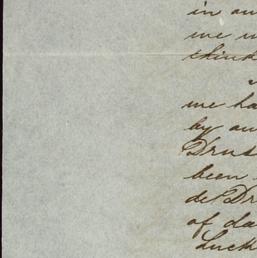 in an
we w
think
me ha
by an
Drus
been
de Dr
of da
Luck